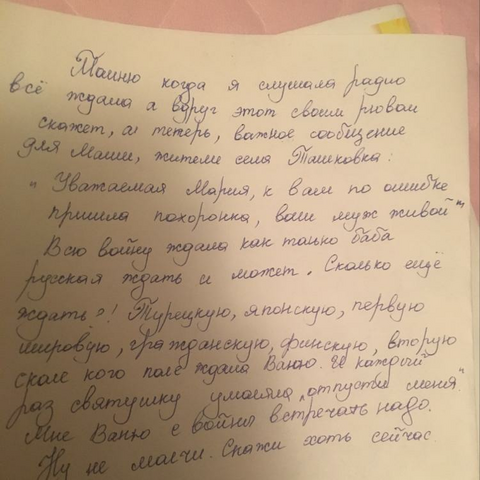 Помню когда я слушала радио
всё ждала а вдруг этот своим ртом
скажет, а теперь, важное сообщение
для Маши, жители села Пашковка:
"Уважаемая Мария, к вам по ошибке
пришла похоронка, ваш муж живой",
Всю войну ждала как только баба
русская ждать и может. Сколько ещё
ждать?! Турецкую, японскую, первую
мировую, гражданскую, финскую, вторую
после кого ждала Ваню. И каждый
раз святушку умоляла "отпусти меня"
Мне Ваню с войны встречать надо.
Ну не молчи. Скажи хоть сейчас.